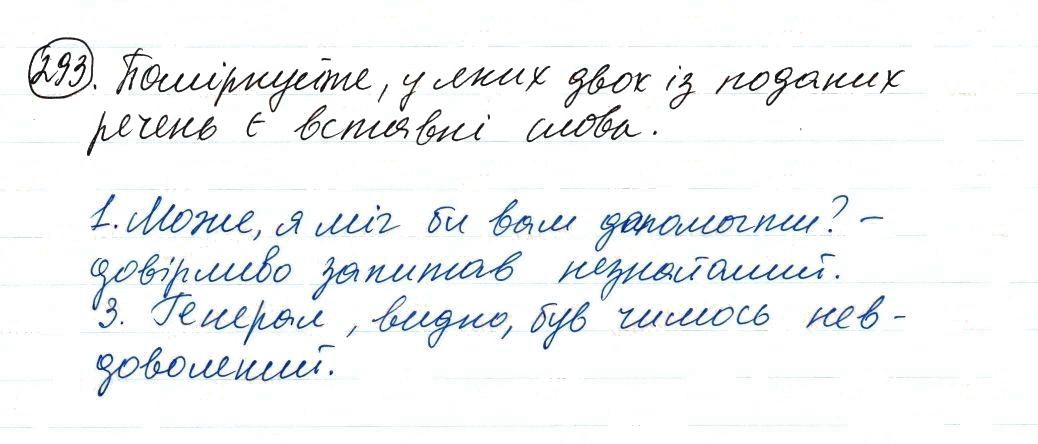 293. Поміркуйте, у яких двох із поданих
речень є вставні слова.
1. Може, я міг би вам допомогти? –
довірливо запитав незнайомий.
3. Генерал, видно, був чимось нев-
доволений.